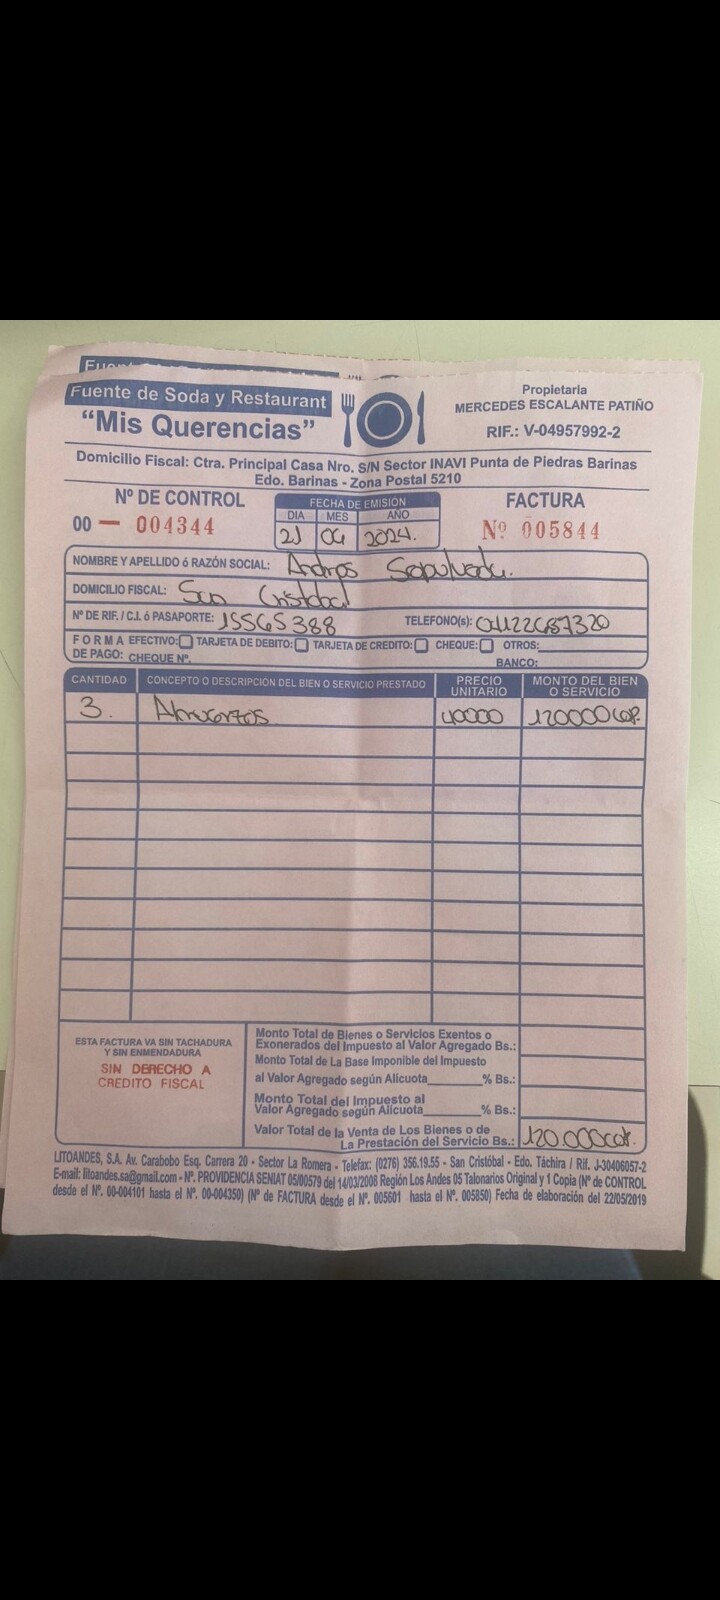 Fuente de Soda y Restaurant
“Mis Querencias”
Propietaria
MERCEDES ESCALANTE PATIÑO
RIF.: V-04957992-2
Domicilio Fiscal: Ctra. Principal Casa Nro. S/N Sector INAVI Punta de Piedras Barinas
Edo. Barinas - Zona Postal 5210
Nº DE CONTROL
00 — 004344
FECHA DE EMISIÓN
DIA MES AÑO
21 04 2024.
FACTURA
Nº 005844
NOMBRE Y APELLIDO ó RAZÓN SOCIAL: Sepulveda.
DOMICILIO FISCAL: San Cristobal
Nº DE RIF. / C.I. ó PASAPORTE: 15565388 TELEFONO(s):
FORMA EFECTIVO: TARJETA DE DEBITO: TARJETA DE CREDITO: CHEQUE: OTROS:
DE PAGO: CHEQUE Nº. BANCO:
CANTIDAD CONCEPTO O DESCRIPCIÓN DEL BIEN O SERVICIO PRESTADO PRECIO UNITARIO MONTO DEL BIEN O SERVICIO
3. Almuerzos 40000 120000 COP.
ESTA FACTURA VA SIN TACHADURA
Y SIN ENMENDADURA
SIN DERECHO A
CREDITO FISCAL
Monto Total de Bienes o Servicios Exentos o
Exonerados del Impuesto al Valor Agregado Bs.:
Monto Total de La Base Imponible del Impuesto
al Valor Agregado según Alicuota______% Bs.:
Monto Total del Impuesto al
Valor Agregado según Alicuota______% Bs.:
Valor Total de la Venta de Los Bienes o de
La Prestación del Servicio Bs.: 120.000 COP.
LITOANDES, S.A. Av. Carabobo Esq. Carrera 20 - Sector La Romera - Telefax: (0276) 356.19.55 - San Cristóbal - Edo. Táchira / Rif. J-30406057-2
E-mail: litoandes.sa@gmail.com - Nº. PROVIDENCIA SENIAT 05/00579 del 14/03/2008 Región Los Andes 05 Talonarios Original y 1 Copia (Nº de CONTROL
desde el Nº. 00-004101 hasta el Nº. 00-004350) (Nº de FACTURA desde el Nº. 005601 hasta el Nº. 005850) Fecha de elaboración del 22/05/2019